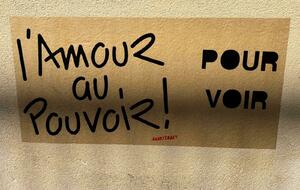 l'AMOUR
au
POUVOIR!
POUR
VOIR